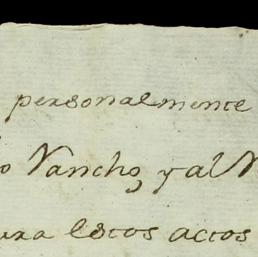 personalmente
o Vancho, y al
ura estos actos